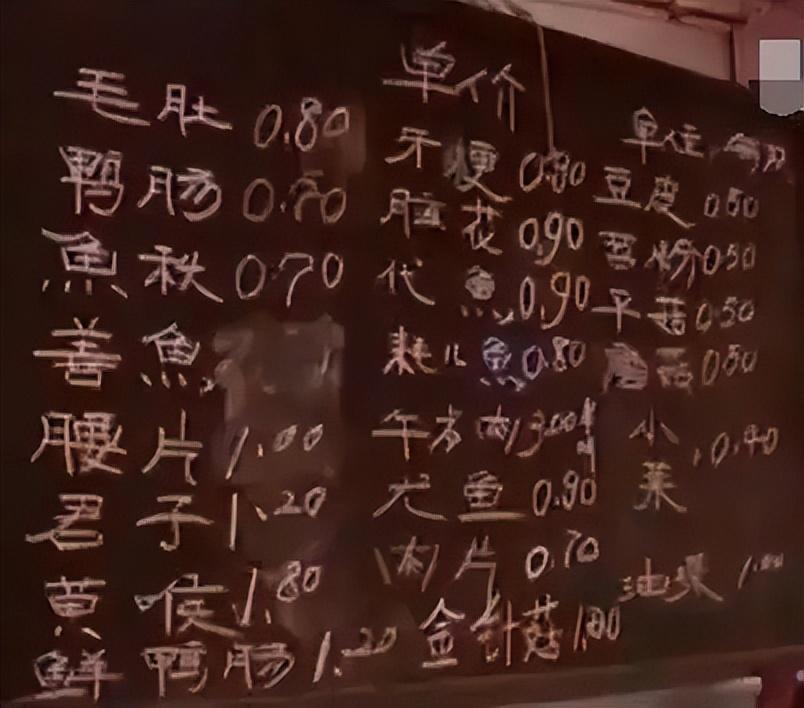 毛肚 0.80
鸭肠 0.70
魚秋 0.70
善魚
腰片 1.00
君子 1.20
黄候 1.80
鲜鸭肠 1.20
单价
牙梗 0.80
脑花 0.90
代魚 0.90
耗儿魚 0.80
午方肉 3.00
尤鱼 0.90
肉片 0.70
金针菇 1.00
单位
豆皮 0.50
苕粉 0.50
平菇 0.50
菇 0.50
小菜 0.40
油果 1.00